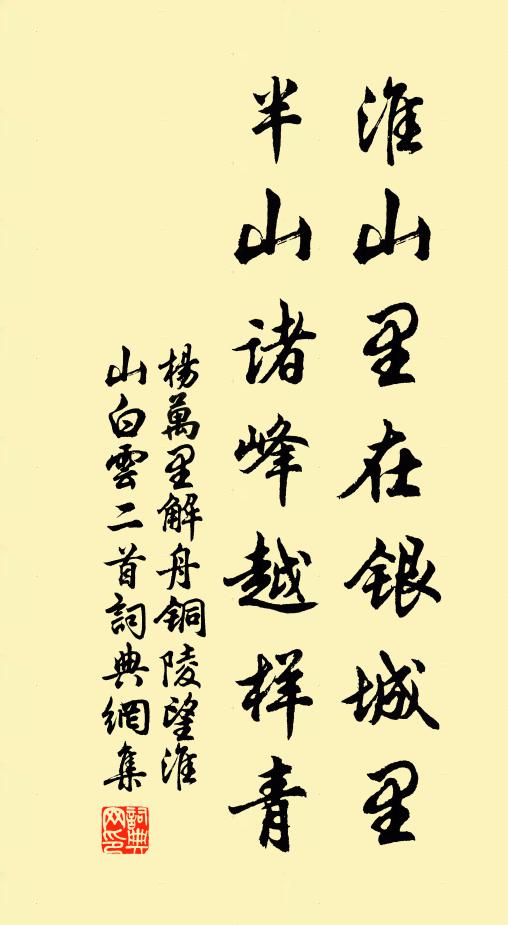 淮山里在银城里
半山诸峰越样青
楊萬里解舟铜陵望淮
山白雲二首詞典網集
詞典
网印